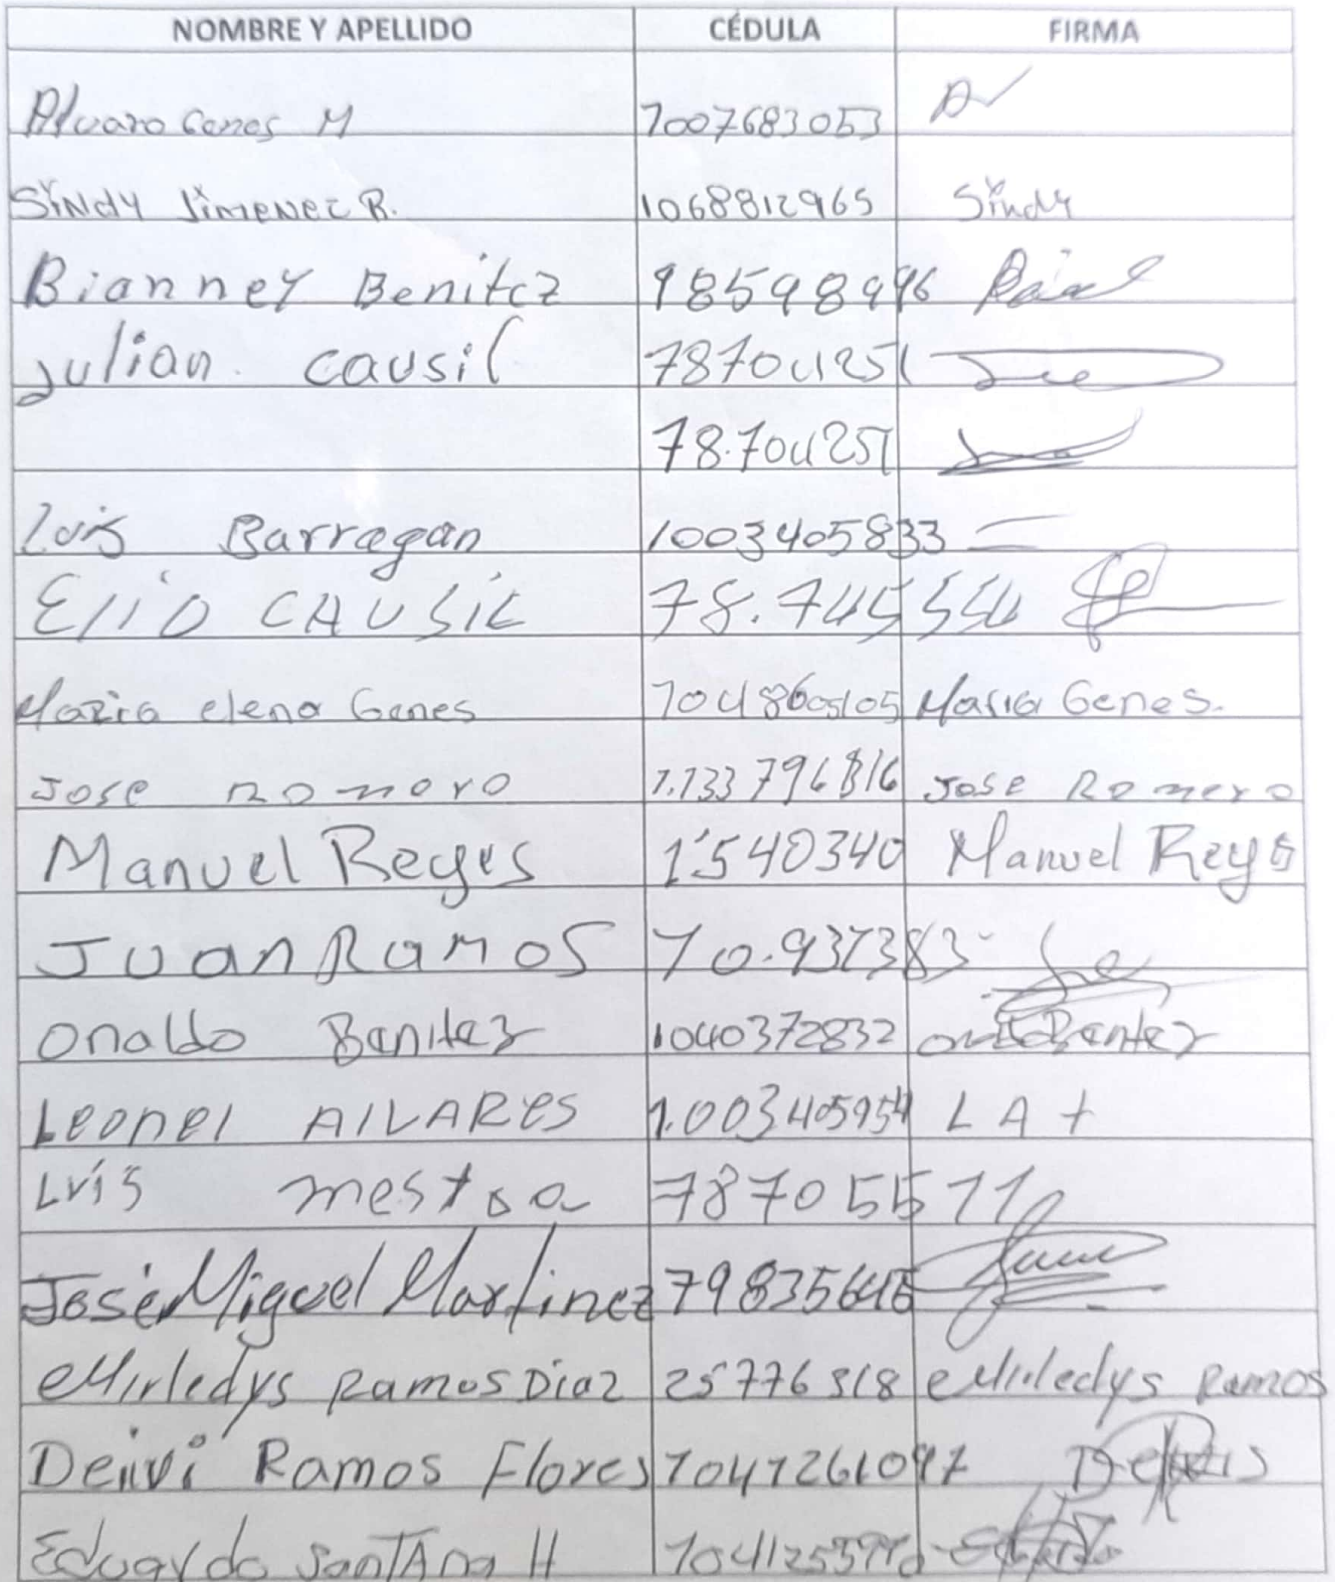 NOMBRE Y APELLIDO CÉDULA FIRMA
Alvaro Genes M 1007683053
Sindy Jimenez R. 1068812965 Sindy
Bianney Benitez 98598996
Julian Causil 78704251
78.704251
Luis Barragan 1003405833
Elio CAUSIL 78.745554
Maria elena Genes María Genes.
Jose Romero 1.133796816 Jose Romero
Manuel Reyes 1'540340 Manuel Reyes
Juan Ramos 70.937383
Onaldo Benitez 1040372832
Leonel AlLARES 1.003405954 L A +
Luis mestra 78705571
José Miguel Martinez 79835645
Mirledys Ramos Diaz 25776318 Mirledys Ramos
Deiivi Ramos Flores 1041261097
Eduardo SanTAna H